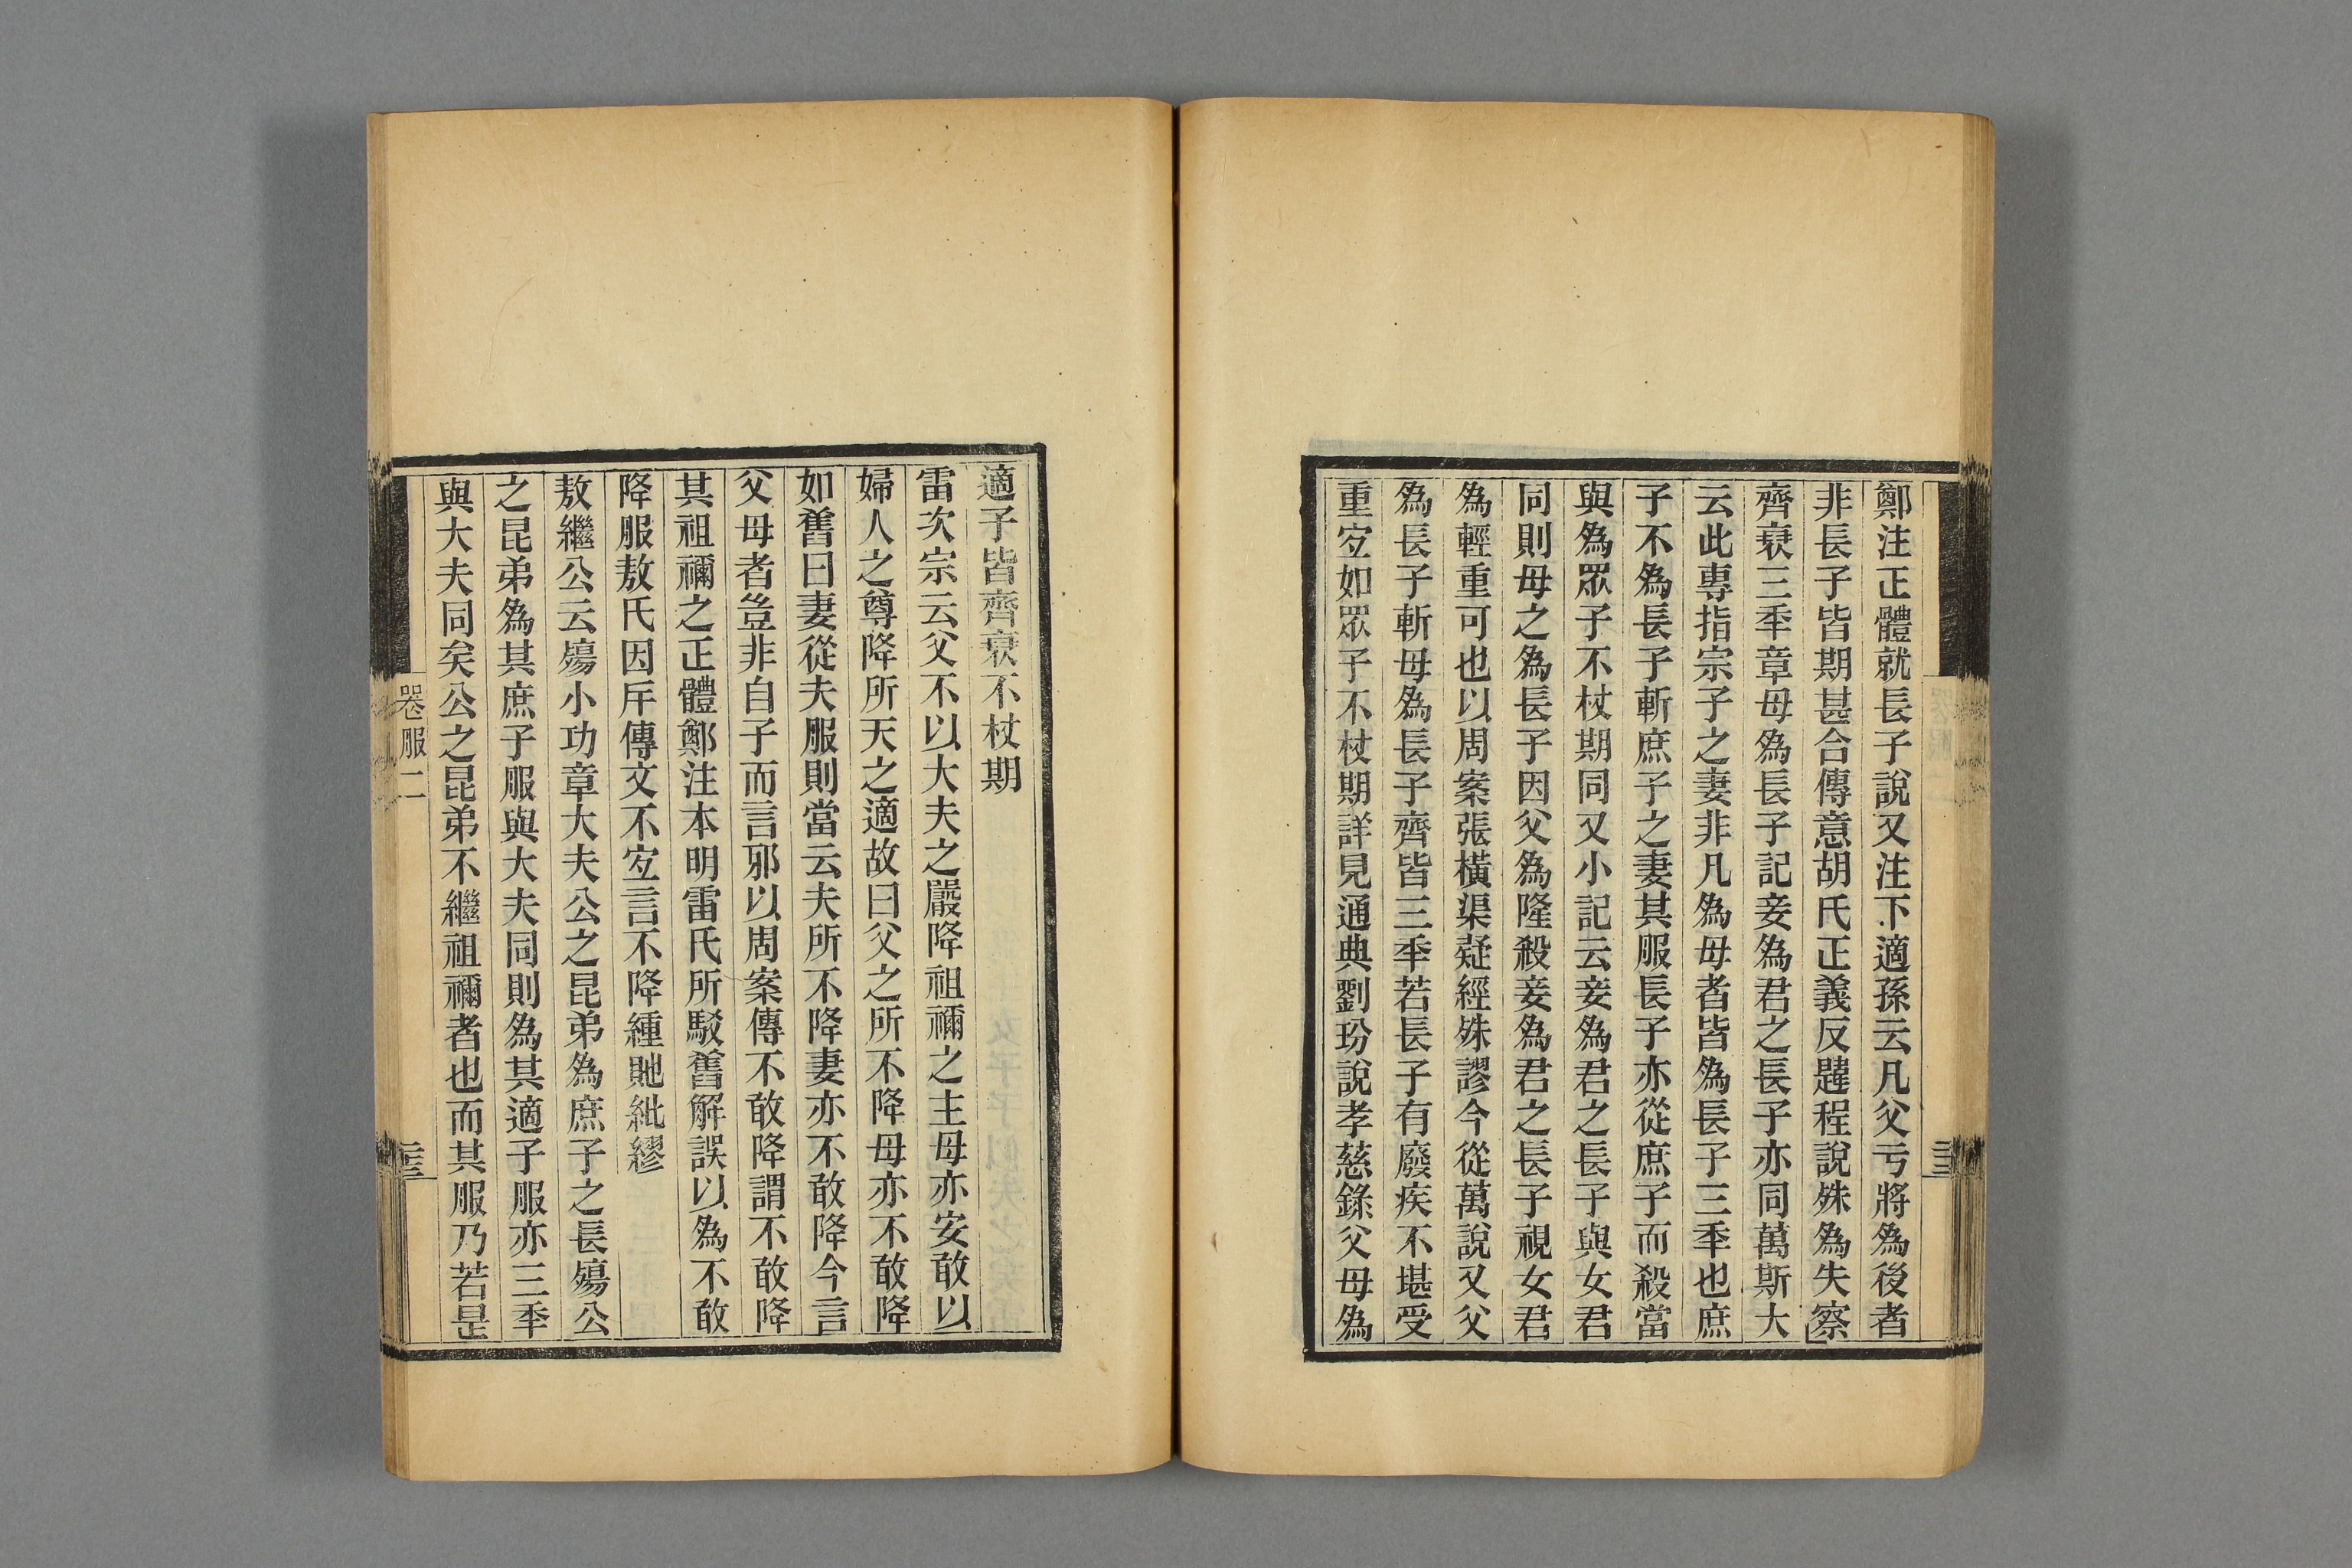 鄭注正體就長子說又注下適孫云凡父亏將爲後者
非長子皆期甚合傳意胡氏正義反韙程說殊爲失察
齊衰三秊章母爲長子記妾爲君之長子亦同萬斯大
云此專指宗子之妻非凡爲母者皆爲長子三秊也庶
子不爲長子斬庶子之妻其服長子亦從庶子而殺當
與爲眾子不杖期同又小記云妾爲君之長子與女君
同則母之爲長子因父爲隆殺妾爲君之長子視女君
爲輕重可也以周案張橫渠疑經殊謬今從萬說又父
爲長子斬母爲長子齊皆三秊若長子有廢疾不堪受
重宐如眾子不杖期詳見通典劉玢說孝慈錄父母爲
適子皆齊衰不杖期
雷次宗云父不以大夫之嚴降祖禰之主母亦安敢以
婦人之尊降所天之適故曰父之所不降母亦不敢降
如舊曰妻從夫服則當云夫所不降妻亦不敢降今言
父母者豈非自子而言邪以周案傳不敢降謂不敢降
其祖禰之正體鄭注本明雷氏所駁舊解誤以爲不敢
降服敖氏因㡿傳文不宐言不降緟貤紕繆
敖繼公云殤小功章大夫公之昆弟爲庶子之長殤公
之昆弟爲其庶子服與大夫同則爲其適子服亦三秊
與大夫同矣公之昆弟不繼祖禰者也而其服乃若是
喪服二